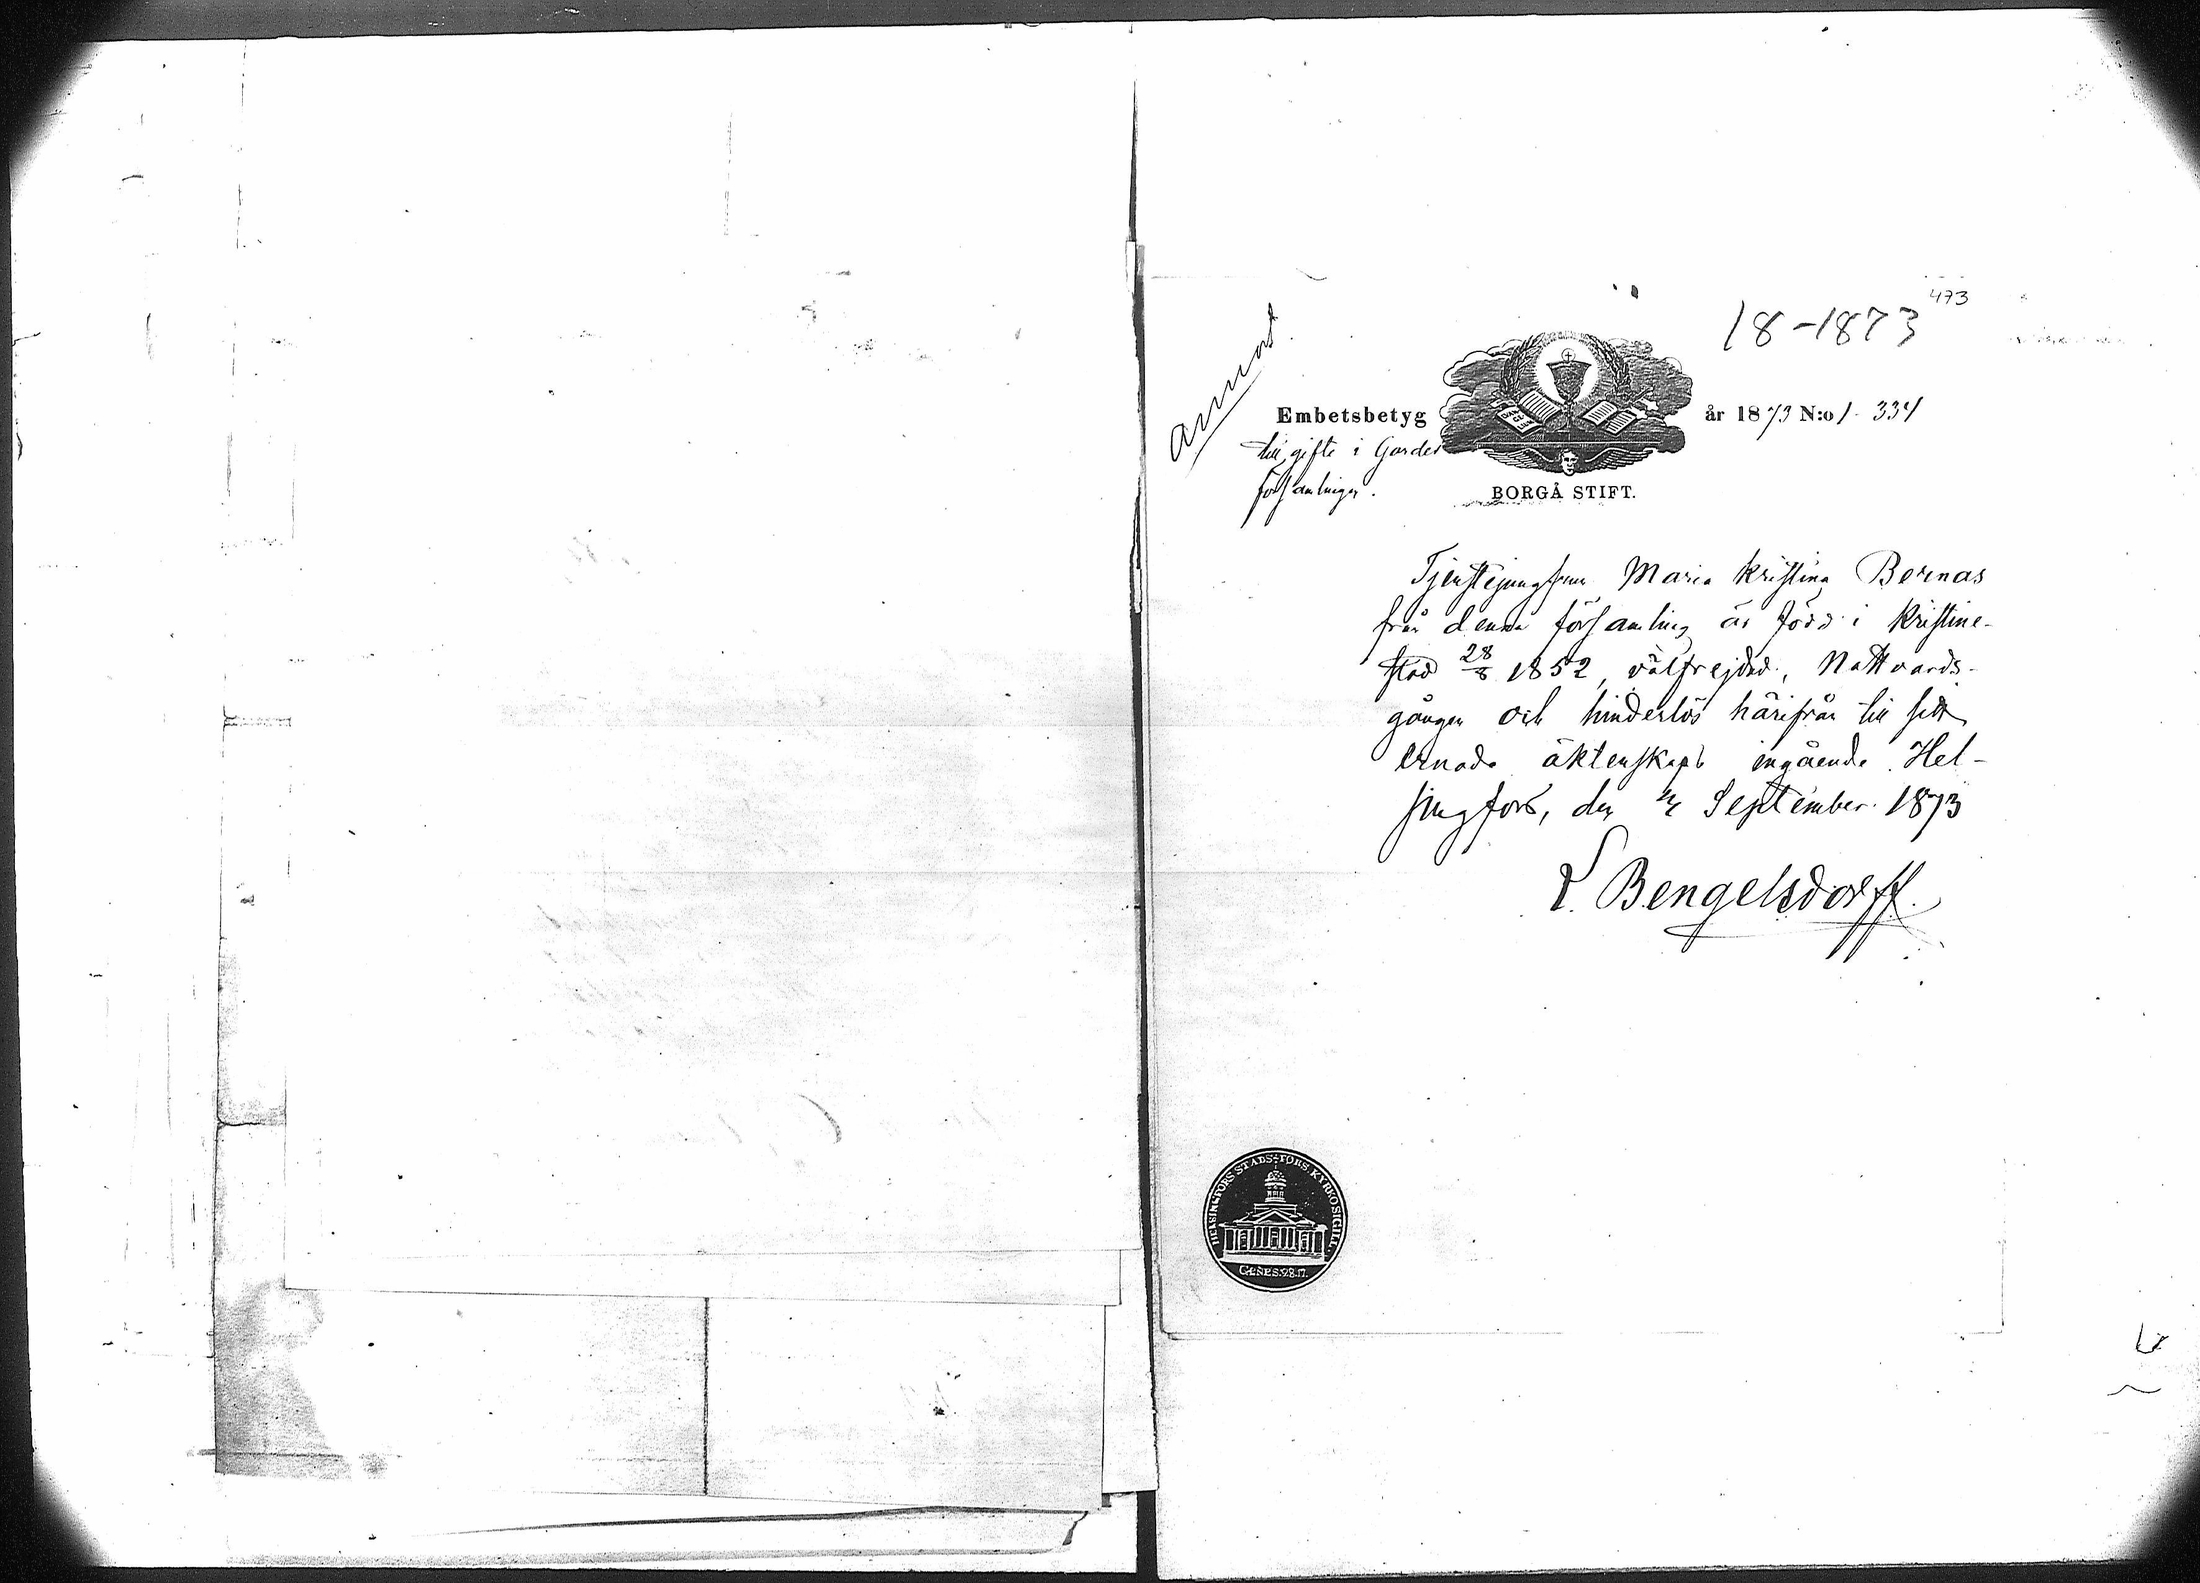 473
18-1873
Embetsbetyg år 1873 N:o 1. 334
till gifte i Gardes
församlingen.
BORGÅ STIFT.
Tjenstejungfrun Maria Kristina Bernas
från denna församling är född i Kristine-
stad 28/8 1852, välfrejdad, Nattvards-
gången och hinderlös härifrån till sitt
ernade äktenskaps ingående. Hel-
singfors, den September 1873
L. Bengelsdorff.
HELSINGFORS STADS FÖRS. KYRKOSIGILL.
GENES. 28.17.